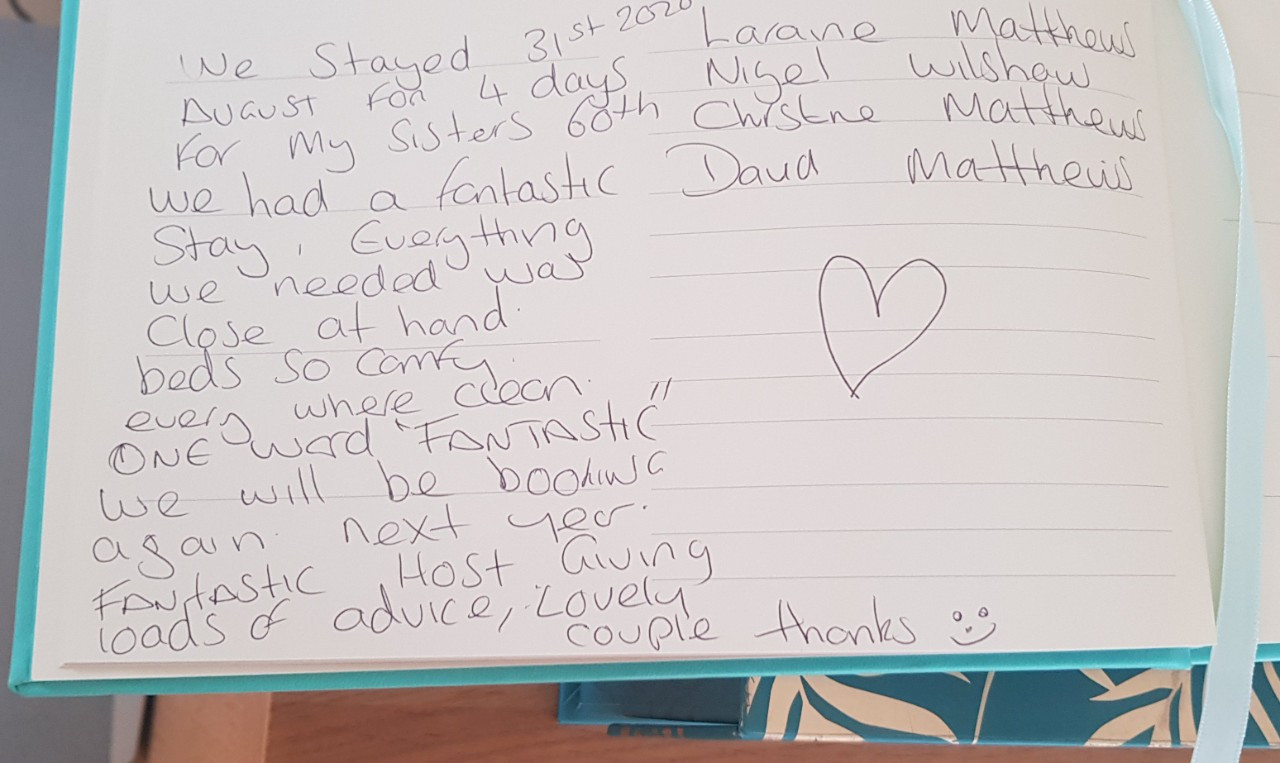 We Stayed 31st 2020
August for 4 days
For My Sisters 60th
we had a fantastic
Stay, Everything
we needed was
Close at hand.
beds so comfy.
every where clean.
ONE word "FANTASTIC"
we will be booking
again next year.
FANTASTIC Host Giving
loads of advice, Lovely
couple thanks
Laraine Matthews
Nigel Wilshaw
Christine Matthews
David Matthews